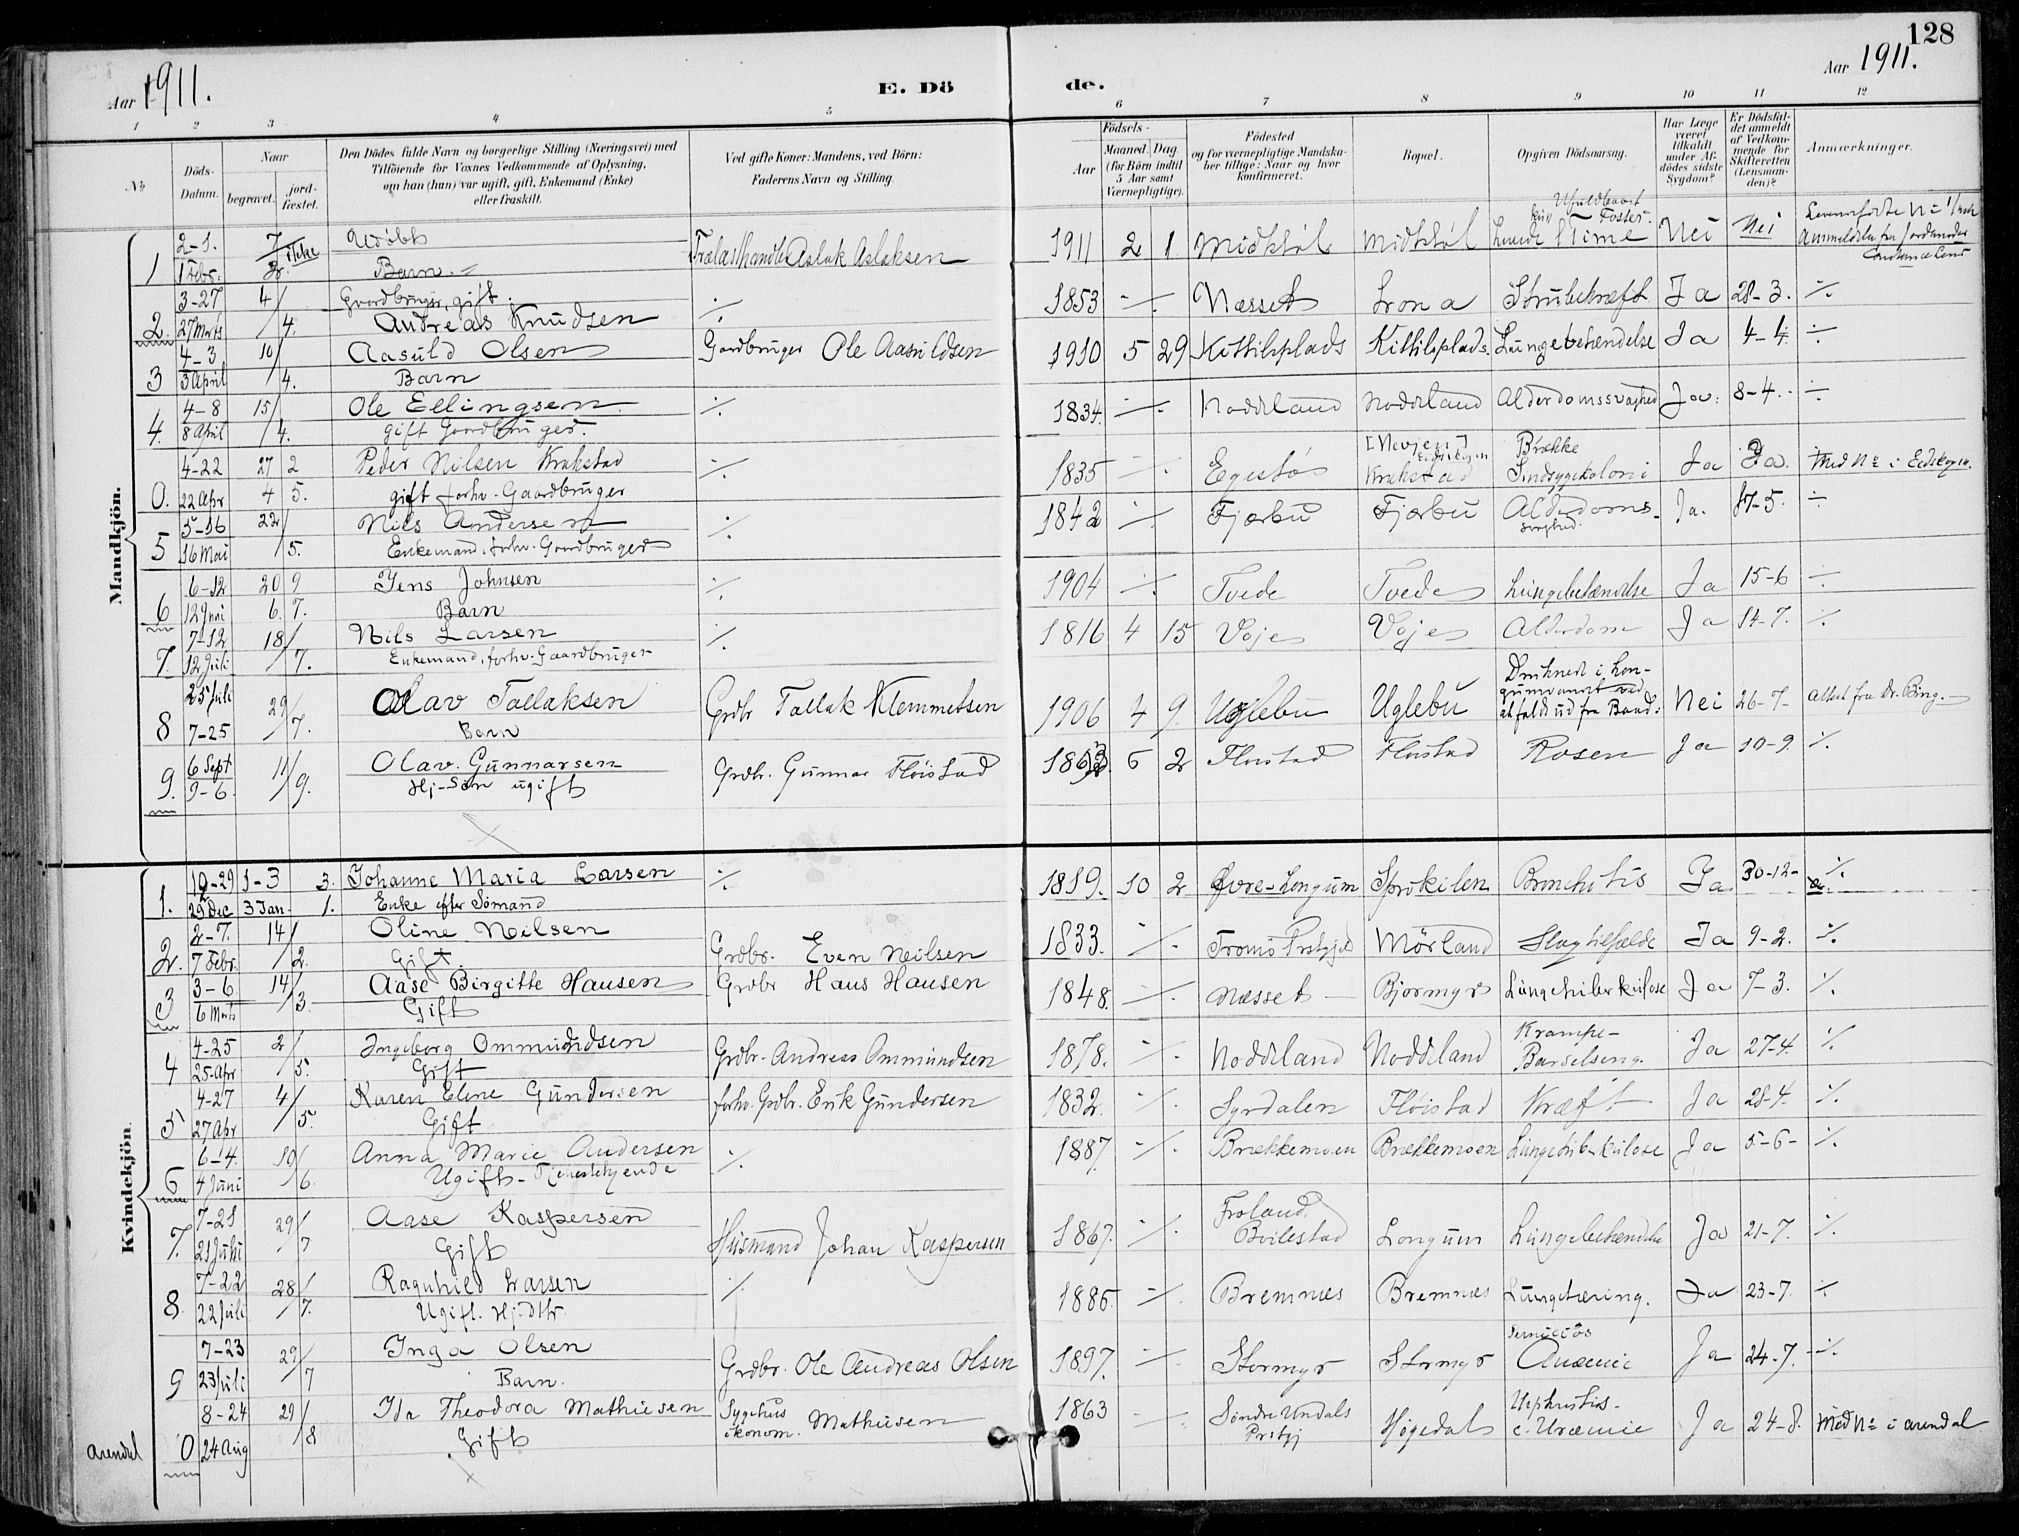 128
Aar 1911.
E. Dö de.
Aar 1911.
1 2 3 4 5 6 7 8 9 10 11 12
No
Döds-Datum.
Naar begravet. jordfæstet.
Den Dödes fulde Navn og borgerlige Stilling (Næringsvei) med Tilföiende for Voxnes Vedkommende af Oplysning, om han (hun) var ugift, gift, Enkemand (Enke) eller fraskilt.
Ved gifte Koner: Mandens, ved Börn: Faderens Navn og Stilling.
Födsels-
Aar Maaned. Dag (for Börn indtil 5 Aar samt Værnepligtige).
Födested og for værnepligtige Mandskaber tillige: Naar og hvor konfirmeret.
Bopæl.
Opgiven Dödsaarsag.
Har Læge været tilkaldt under Afdödes sidste Sygdom?
Er Dödsfaldet anmeldt af Vedkommende for Skifteretten (Lensmanden)?
Anmærkninger.
Mandkjön.
1 2-1. 1 Febr. ikke Udöbt Barn Trælasthandler Aslak Aslaksen 1911 2 1 Midtböl Midtböl Levede 1 Time Nei Nei
2. 3-27 27 Marts 4/4. Gaardbruger, gift. Andreas Knudsen ./. 1853 ./. Næsset Lrona Strubekræft Ja 28-3. ./.
3 4-3 3 April 10/4. Aasuld Olsen Barn Gaardbruger Ole Aasuldsen 1910 5 29 Kittilsplads Kittilsplads Lungebetændelse Ja 4-4. ./.
4. 4-8 8 April 15/4. Ole Ellingsen gift Gaardbruger. ./. 1834. ./. Noddeland Noddeland Alderdomssvaghed Ja 8-4. ./.
0. 4-22 22 Apr 27/4 2/5. Peder Nilsen Krakstad gift forhv. Gaardbruger ./. 1835 ./. Egestö Krakstad Brække Sindsygekoloni Ja Ja. Med No i Eidskogen.
5 5-16 16 Mai 22/5. Nils Andersen Enkemand, forhv. Gaardbruger ./. 1842 ./. Fjærbu Fjærbu Alderdoms-svaghed Ja. 17-5. ./.
6 6-12 12 Juni 20/6. 9/7. Jens Johnsen Barn ./. 1904 ./. Tvede Tvede Lungebetændelse Ja 15-6 ./.
7. 7-12 12 Juli 18/7. Nils Larsen Enkemand, forhv. Gaardbruger ./. 1816 4 15 Voje Voje Alderdom Ja 14-7. ./.
8 25 Juli 7-25 29/7. Olav Tallaksen Barn Grdbr Tallak Klemmetsen 1906 4 9 Uglebu Uglebu Druknede i Longumvandt ved at falde ud fra Baad. Nei 26-7- Attest fra Dr. Bing.
9. 6 Sept 9-6. 11/9. Olav Gunnarsen Hj-Sön ugift Grdbr. Gunnar Flöistad 6 2 Flöistad Flöistad Rosen Ja 10-9. ./.
Kvindekjön.
1. 12-29 29 Dec 1-3 3 Jan. 3. 1. Johanne Maria Larsen Enke efter Sömand ./. 1819. 10 2 Övre-Longum Sprokilen Bronchitis Ja 30-12- ./.
2. 2-7. 7 Febr. 14/2. Oline Neilsen Gift. Grdbr. Even Neilsen 1833. ./. Tromö Prstgjeld Mörland Slagtilfælde Ja 9-2. ./.
3 3-6 6 Marts 14/3. Aase Birgitte Hansen Gift Grdbr Hans Hansen 1848. ./. Næsset Bjormyr Lungetuberkulose Ja 7-3. ./.
4 4-25 25 Apr 2/5. Ingeborg Ommundsen Gift Grdbr. Andreas Ommundsen 1878. ./. Noddeland Noddeland Krampe-Barselseng. Ja 27-4. ./.
5 4-27 27 Apr 4/5. Karen Eline Gundersen Gift forhv. Grdbr. Erik Gundersen 1832. ./. Syrdalen Flöistad Kræft Ja 28-4. ./.
6 6-4. 4 Juni 10/6. Anna Marie Andersen Ugift-Tjenestetyende ./. 1887. ./. Brækkemoen Brækkemoen Lungetuberkulose Ja 5-6- ./.
7. 7-21 21 Juli 29/7 Aase Kaspersen Gift Husmand Johan Kaspersen 1867. ./. Froland. Bvilestad Longum Lungebetændelse Ja 21-7. ./.
8. 7-22 22 Juli 28/7. Ragnhild Larsen Ugift. Hj.dtr. ./. 1886. ./. Bremnæs Bremnæs Lungetæring. Ja 23-7. ./.
9 7-23 23 Juli 29/7 Inga Olsen Barn. Grdbr. Ole Andreas Olsen 1897. ./. Stormyr Stormyr Perniciös Anæmie Ja 24-7. ./.
Arendal 0 8-24 24 Aug 29/8 Ida Theodora Mathiesen Gift Sygehusökonom. Mathiesen 1863 ./. Söndre Undals Prstgj Høgedal Nephritis c. Uræmie Ja 24-8. Med No i Arendal